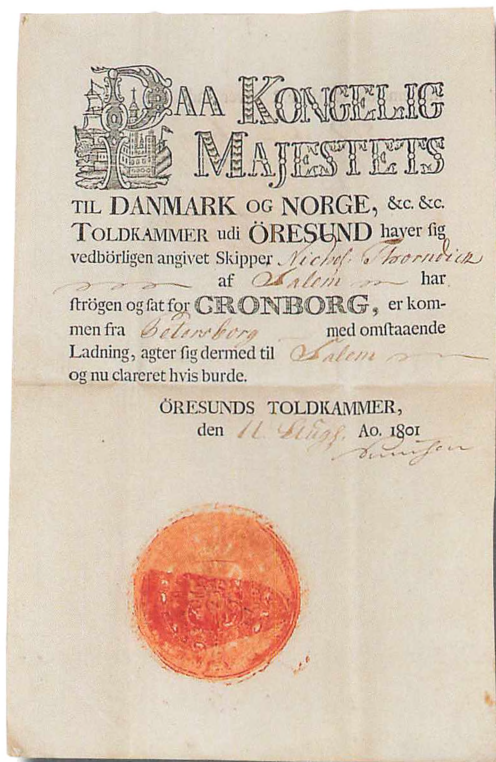 PAA KONGELIG
MAJESTETS
TIL DANMARK OG NORGE, &c. &c.
TOLDKAMMER udi ÖRESUND haver sig
vedbörligen angivet Skipper Nichs. Thorndick
af Salem har
strögen og sat for CRONBORG, er kom-
men fra Petersborg med omstaaende
Ladning, agter sig dermed til Salem
og nu clareret hvis burde.
ÖRESUNDS TOLDKAMMER,
den 11 Augs. Ao. 1801